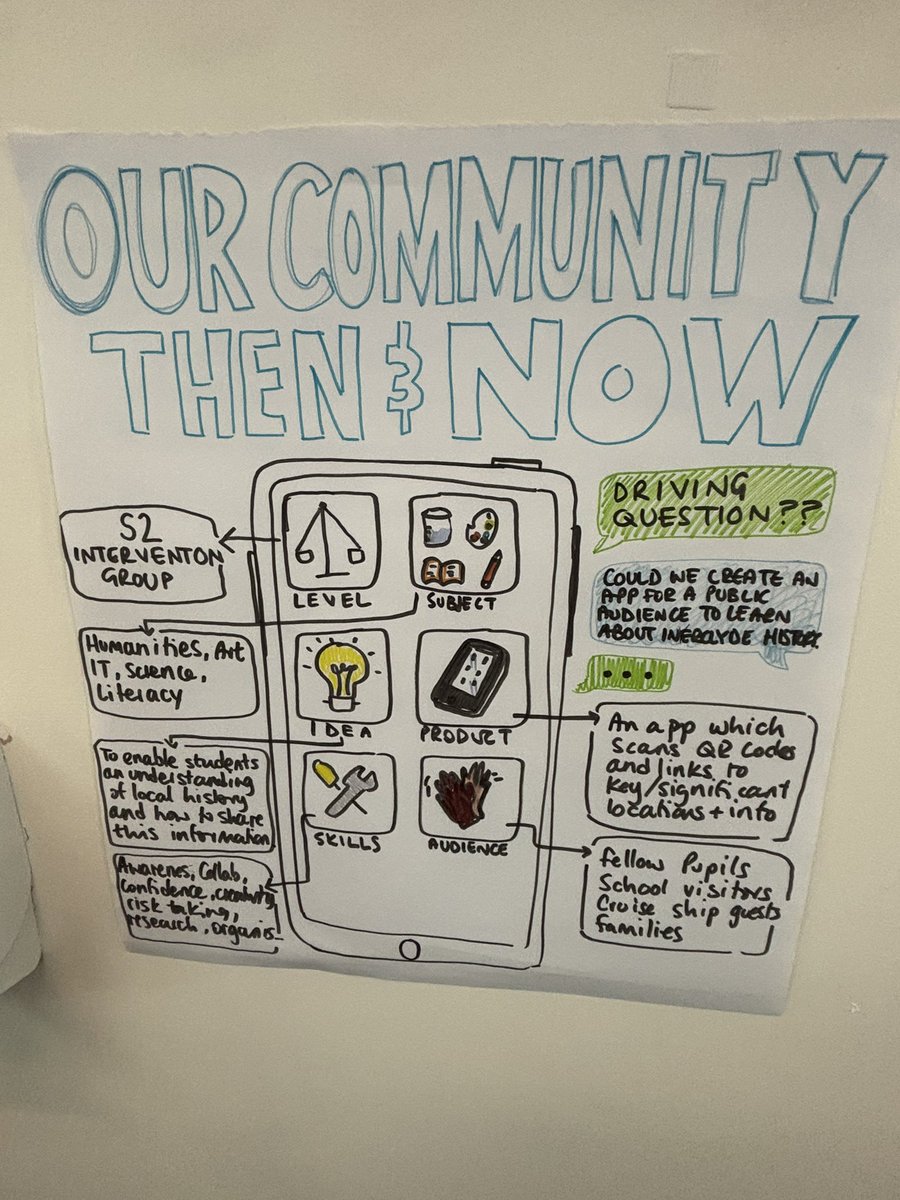 OUR COMMUNITY
THEN & NOW
S2
INTERVENTON
GROUP
LEVEL
SUBJECT
Humanities, Art
IT, Science,
Literacy
IDEA
PRODUCT
To enable students
an understanding
of local history
and how to share
this information
SKILLS
AUDIENCE
Awarenes, Collab,
confidence, creativity,
risk taking,
research, organis-
DRIVING
QUESTION??
COULD WE CREATE AN
APP FOR A PUBLIC
AUDIENCE TO LEARN
ABOUT INERCLYDE HISTORY.
...
An app which
scans QR codes
and links to
key/significant
locations + info
Fellow Pupils
School visitors
Cruise ship guests
families